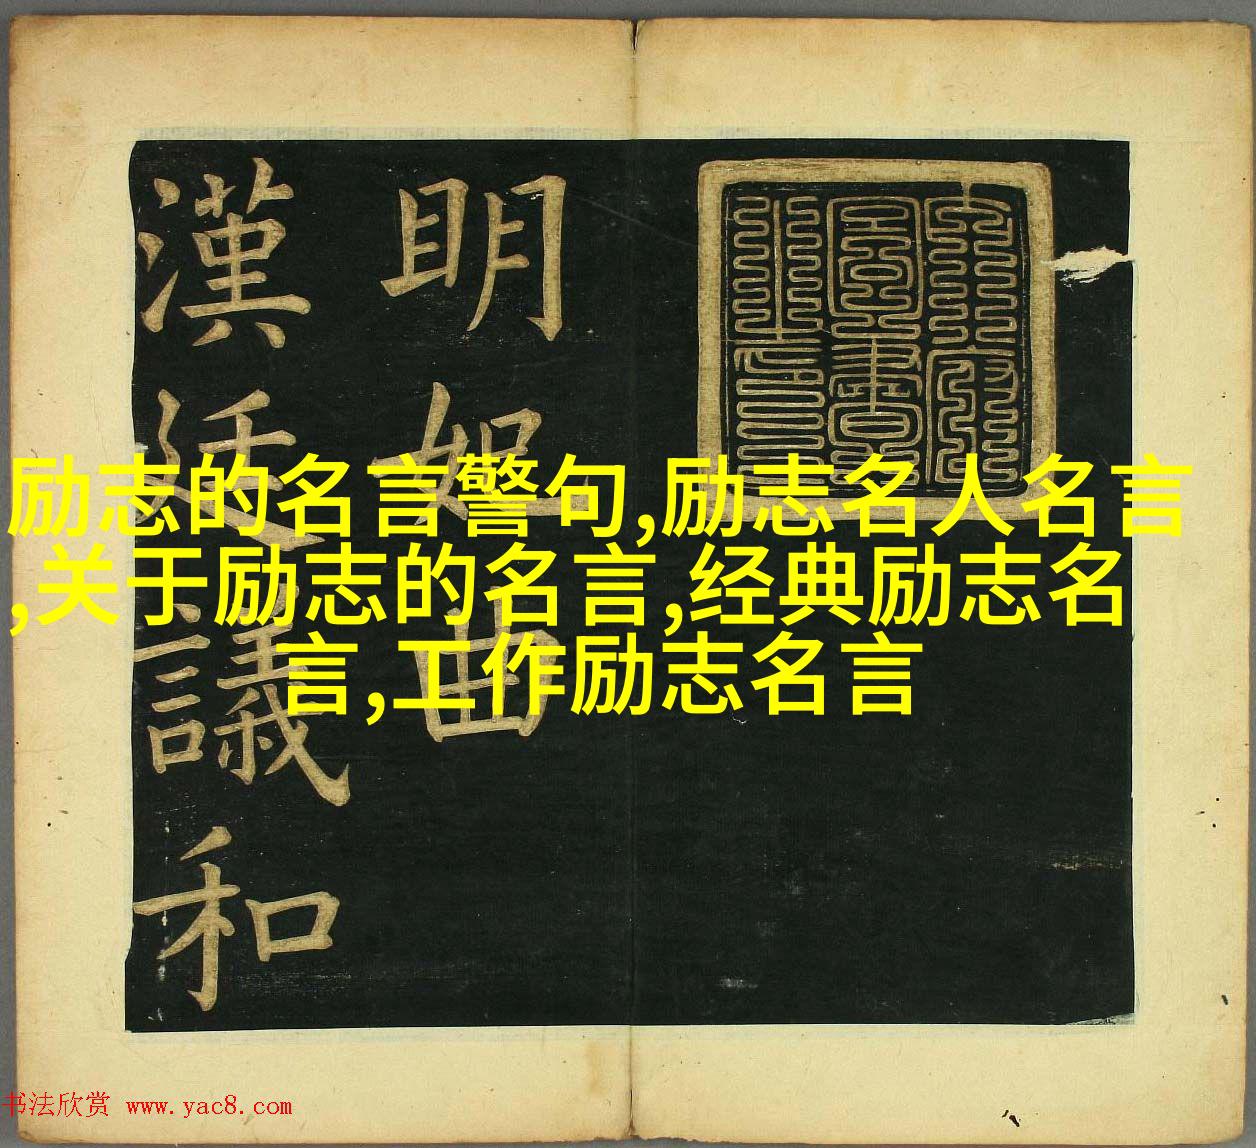 明妃曲
漢廷議和
励志的名言警句,励志名人名言
,关于励志的名言,经典励志名
言,工作励志名言
书法欣赏 www.yac8.com